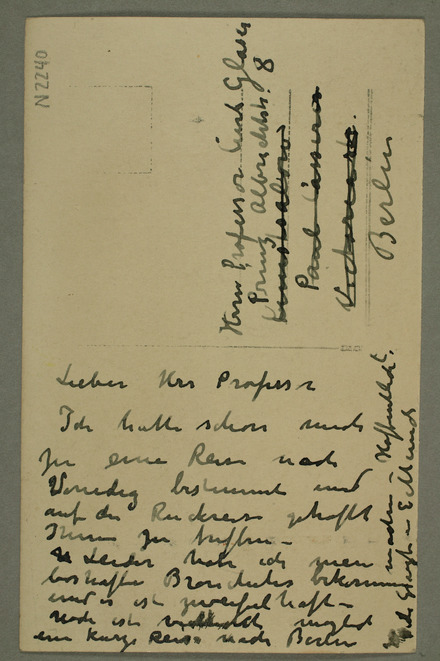 N 2240
Herrn Professor Curt Glaser
Prinz Albrechtstr. 8
Kunstsalon
Paul Cassirer
Victoriastr.
Berlin
Lieber Herr Professor
Ich hatte schon mich
zu eine Reise nach
Venedig bestimmt und
auf der Rückreise gehofft
Ihnen zu treffen –
Leider habe ich einen
boshaften Bronchitis bekommen
und es ist zweifelhaft –
noch ist möglich
eine kurze Reise nach Berlin
machen – Hoffentlich
E Munch